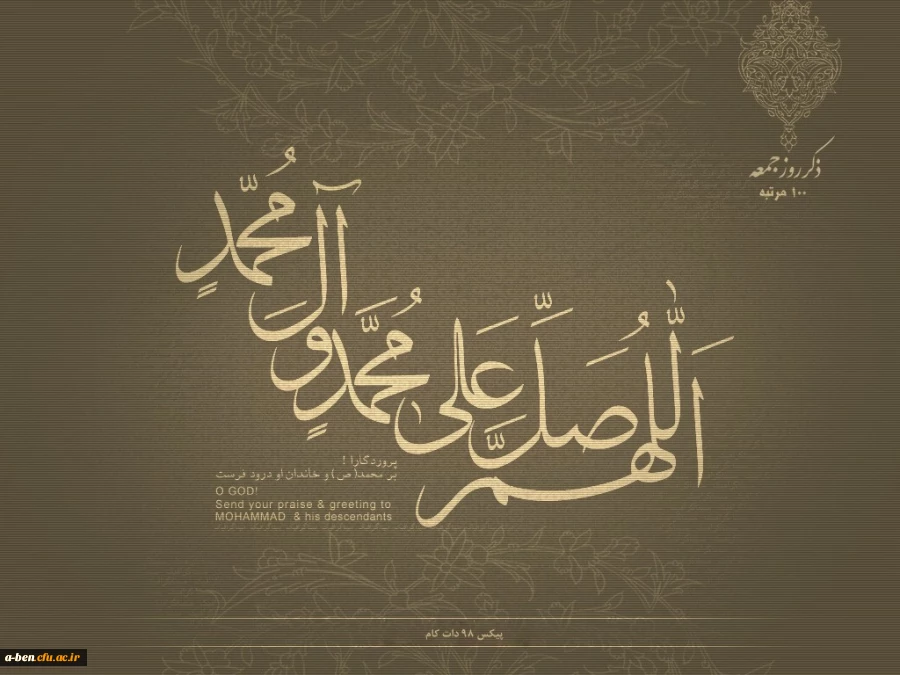 ذکر روز جمعه
۱۰۰ مرتبه
اَللّٰهُمَّ صَلِّ عَلی مُحَمَّدٍ وَ آلِ مُحَمَّدٍ
پروردگارا !
بر محمد(ص) و خاندان او درود فرست
O GOD!
Send your praise & greeting to
MOHAMMAD & his descendants
پیکس ۹۸ دات کام
a-ben.cfu.ac.ir